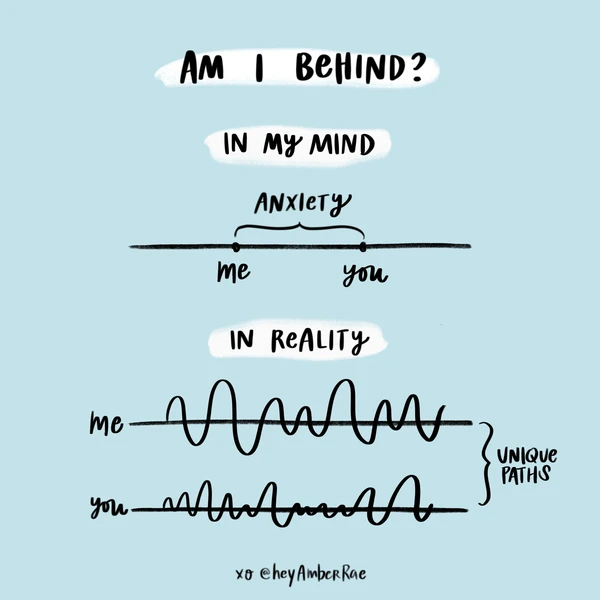 AM I BEHIND?
IN MY MIND
ANXIETY
me you
IN REALITY
me
you
UNIQUE
PATHS
xo @heyAmberRae